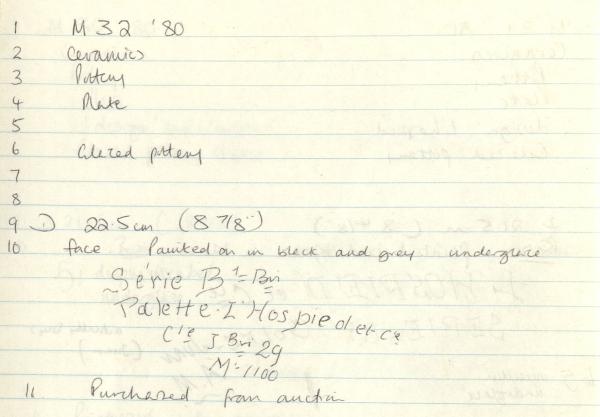 1 M 32 '80
2 Ceramics
3 Pottery
4 Plate
5
6 Glazed pottery
7
8
9 1) 22.5cm (8 7/8")
10 face Painted on in black and grey underglaze
Série B¹ = Bri
Palette. L'Hospied et Cie
Cie J Bri 29
M = 1100
11 Purchased from auction